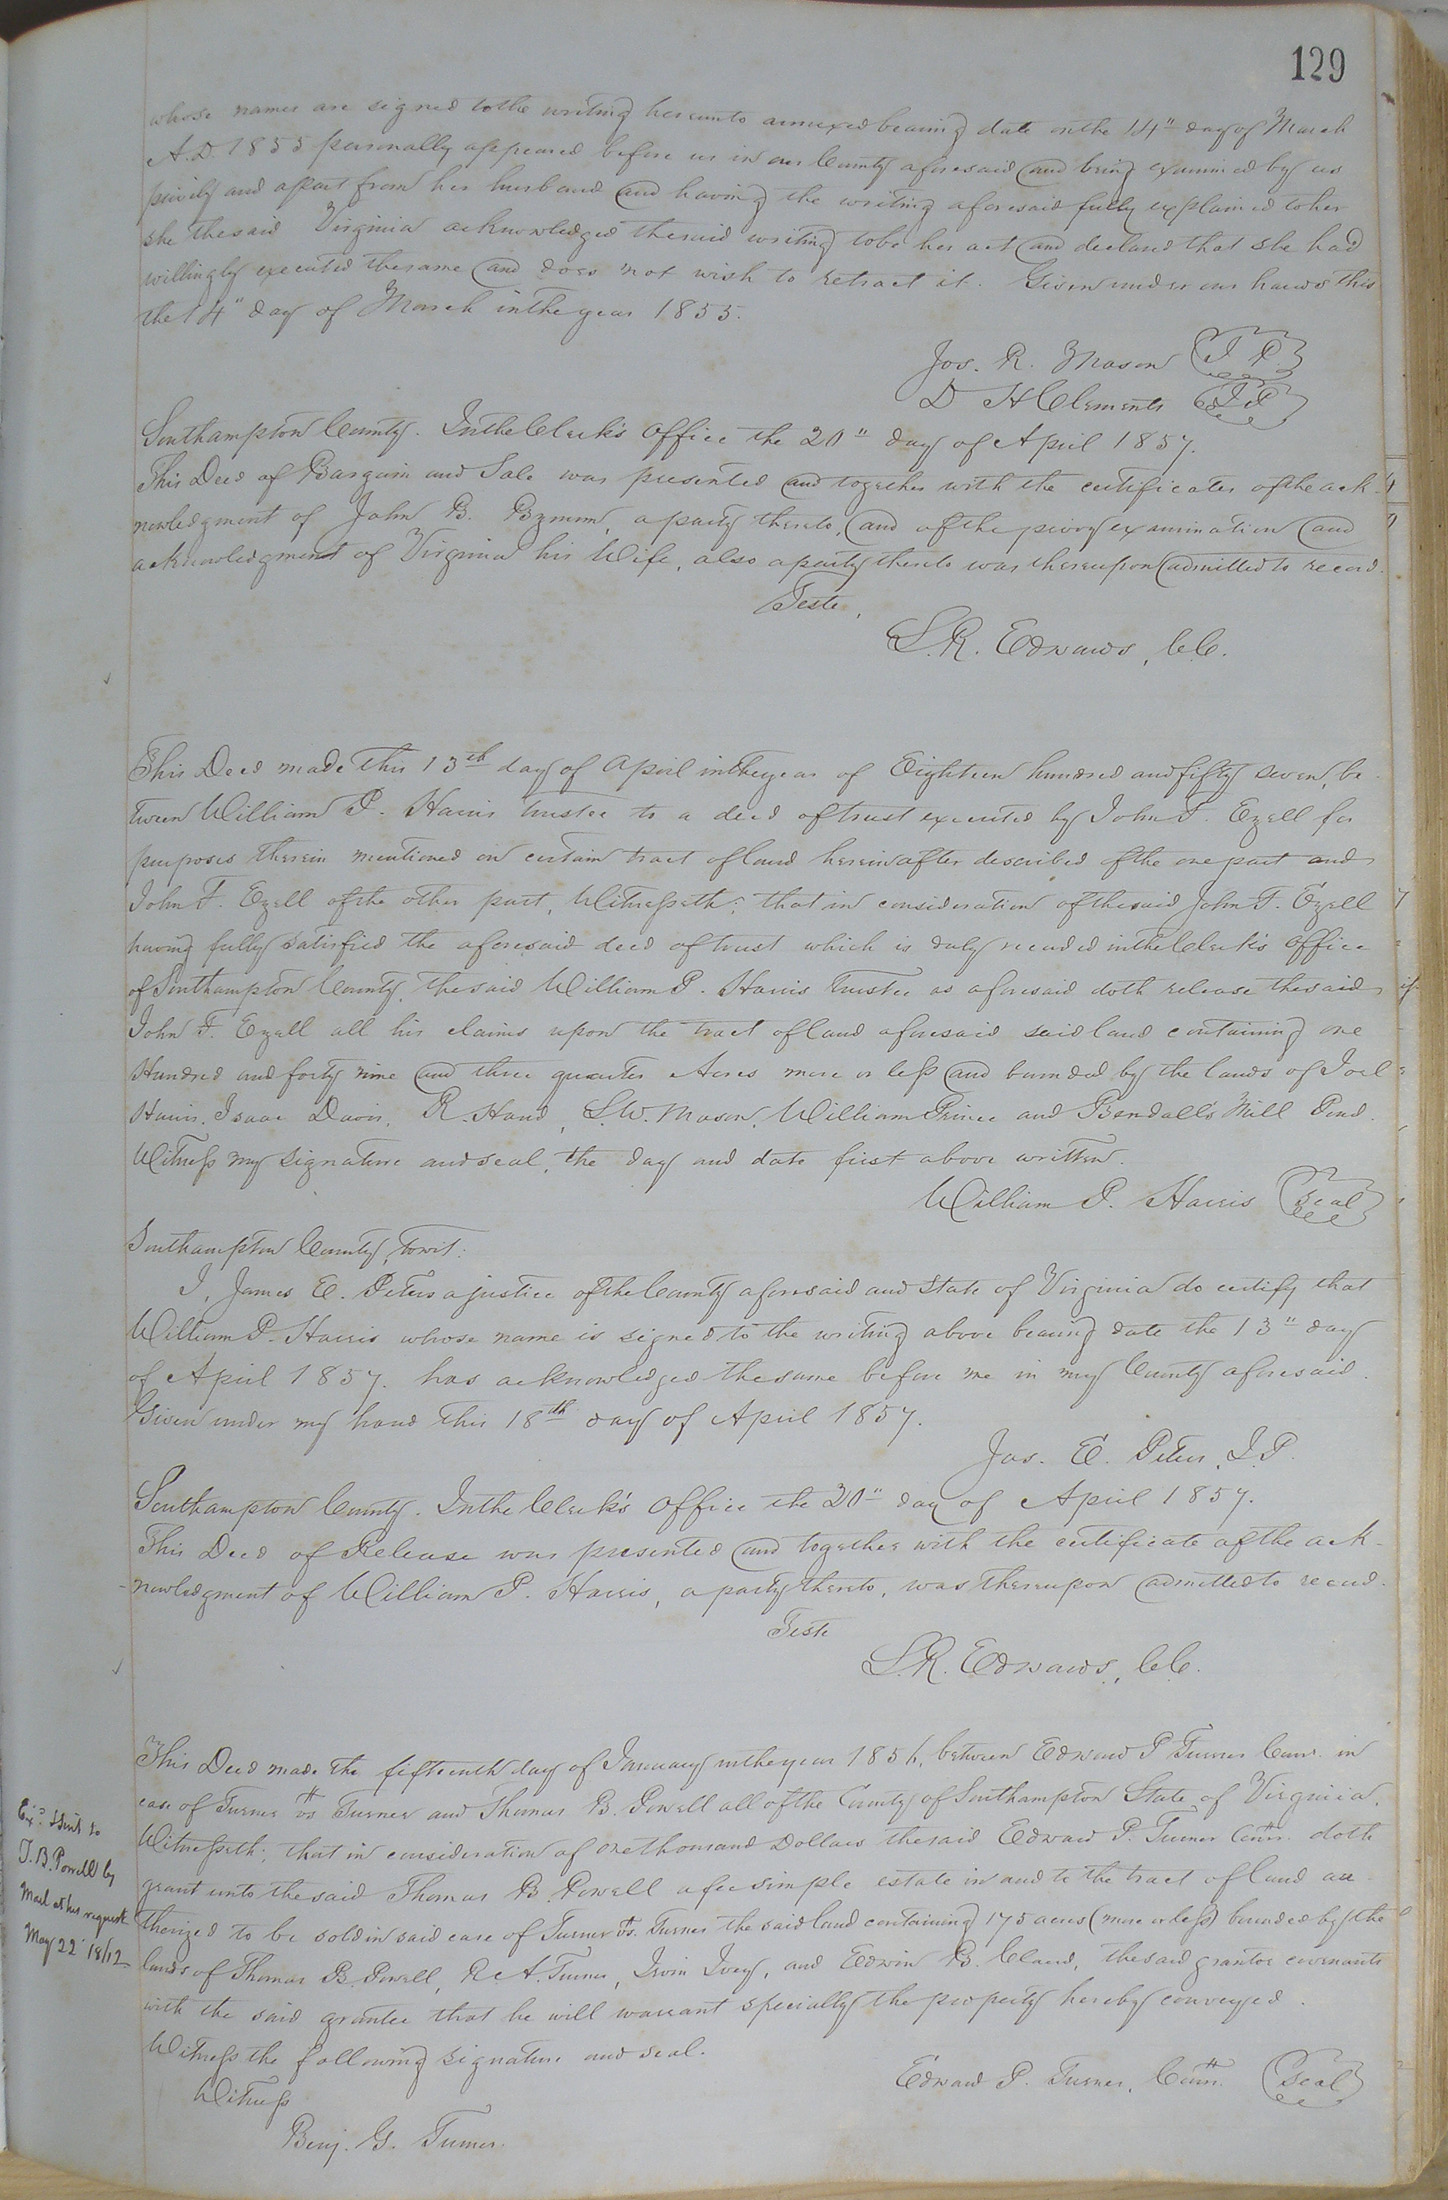 129
whose names are signed to the writing hereunto annexed bearing date on the 14" day of March
A.D. 1855 personally appeared before us in our County aforesaid and being examined by us
privily and apart from her husband and having the writing aforesaid fully explained to her
she the said Virginia acknowledged the said writing to be her act and declared that she had
willingly executed the same and does not wish to retract it. Given under our hands this
the 14" day of March in the year 1855.
Jos. R. Mason J P.
D H Clements J P
Southampton County. In the Clerk's Office the 20" day of April 1857.
This Deed of Bargain and Sale was presented and together with the certificates of the ack-
nowledgment of John B. Bynum, a party thereto, and of the privy examination and
acknowledgment of Virginia his Wife, also a party thereto was thereupon admitted to record.
Teste,
L.R. Edwards, C.C.
This Deed made this 13th day of April in the year of Eighteen hundred and fifty seven, be-
tween William P. Harris trustee to a deed of trust executed by John F. Ezell for
purposes therein mentioned on certain tract of land hereinafter described of the one part and
John F. Ezell of the other part, Witnesseth: that in consideration of the said John F. Ezell
having fully satisfied the aforesaid deed of trust which is duly recorded in the Clerk's Office
of Southampton County, the said William P. Harris trustee as aforesaid doth release the said
John F. Ezell all his claims upon the tract of land aforesaid said land containing one
Hundred and forty nine and three quarter Acres more or less and bounded by the lands of Joel
Harris, Isaac Davis, R. Hand, S.W. Mason, William Prince and Bendall's Mill Pond.
Witness my signature and seal, the day and date first above written.
William P. Harris Seal
Southampton County, towit:
I, James E. Peters a justice of the County aforesaid and State of Virginia do certify that
William P. Harris whose name is signed to the writing above bearing date the 13" day
of April 1857. has acknowledged the same before me in my County aforesaid.
Given under my hand this 18th day of April 1857.
Jas. E. Peters, J.P.
Southampton County. In the Clerk's Office the 20" day of April 1857.
This Deed of Release was presented and together with the certificate of the ack-
nowledgment of William P. Harris, a party thereto, was thereupon admitted to record.
Teste
L.R. Edwards, C.C.
This Deed made the fifteenth day of January in the year 1856, between Edward P Turner Comr. in
case of Turner vs. Turner and Thomas B. Powell all of the County of Southampton State of Virginia.
Witnesseth; that in consideration of one thousand Dollars the said Edward P. Turner Comr. doth
grant unto the said Thomas B Powell a fee simple estate in and to the tract of land au-
thorized to be sold in said case of Turner vs. Turner the said land containing 175 acres (more or less) bounded by the
lands of Thomas B Powell, R. A. Turner, Irvin Ivey, and Edwin B. Claud, the said grantor covenants
with the said grantee that he will warrant specially the property hereby conveyed.
Witness the following signature and seal.
Edward P. Turner, Comr. Seal
Witness
Benj. G. Turner.
Exd. & Sent to
T.B. Powell by
Mail at his request
May 22